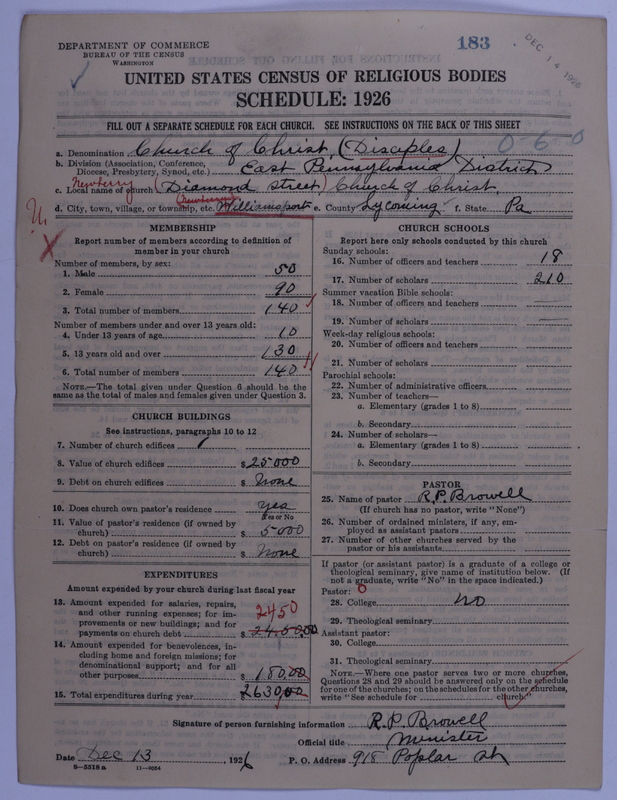 DEPARTMENT OF COMMERCE
BUREAU OF THE CENSUS
WASHINGTON
183
DEC 14 1926
UNITED STATES CENSUS OF RELIGIOUS BODIES
SCHEDULE: 1926
FILL OUT A SEPARATE SCHEDULE FOR EACH CHURCH. SEE INSTRUCTIONS ON THE BACK OF THIS SHEET
0-6 0
a. Denomination Church of Christ, (Disciples)
b. Division (Association, Conference,
Diocese, Presbytery, Synod, etc.) East Pennsylvania District
c. Local name of church Newberry (Diamond Street) Church of Christ
d. City, town, village, or township, etc. (Newberry) Williamsport e. County Lycoming f. State Pa
MEMBERSHIP
Report number of members according to definition of
member in your church
Number of members, by sex:
1. Male 50
2. Female 90
3. Total number of members 140
Number of members under and over 13 years old:
4. Under 13 years of age 10
5. 13 years old and over 130
6. Total number of members 140
NOTE.—The total given under Question 6 should be the
same as the total of males and females given under Question 3.
CHURCH BUILDINGS
See instructions, paragraphs 10 to 12
7. Number of church edifices 1
8. Value of church edifices $ 25000
9. Debt on church edifices $ None
10. Does church own pastor's residence Yes
Yes or No
11. Value of pastor's residence (if owned by
church) $ 5000
12. Debt on pastor's residence (if owned by
church) $ None
EXPENDITURES
Amount expended by your church during last fiscal year
13. Amount expended for salaries, repairs,
and other running expenses; for im-
provements or new buildings; and for
payments on church debt $ 2450 2450.00
14. Amount expended for benevolences, in-
cluding home and foreign missions; for
denominational support; and for all
other purposes $ 180.00
15. Total expenditures during year $ 2630.00
CHURCH SCHOOLS
Report here only schools conducted by this church
Sunday schools:
16. Number of officers and teachers 18
17. Number of scholars 210
Summer vacation Bible schools:
18. Number of officers and teachers
19. Number of scholars
Week-day religious schools:
20. Number of officers and teachers
21. Number of scholars
Parochial schools:
22. Number of administrative officers
23. Number of teachers—
a. Elementary (grades 1 to 8)
b. Secondary
24. Number of scholars—
a. Elementary (grades 1 to 8)
b. Secondary
PASTOR
25. Name of pastor R.P. Browell
(If church has no pastor, write "None")
26. Number of ordained ministers, if any, em-
ployed as assistant pastors
27. Number of other churches served by the
pastor or his assistants
If pastor (or assistant pastor) is a graduate of a college or
theological seminary, give name of institution below. (If
not a graduate, write "No" in the space indicated.)
Pastor: 0
28. College no
29. Theological seminary
Assistant pastor:
30. College
31. Theological seminary
NOTE.—Where one pastor serves two or more churches,
Questions 28 and 29 should be answered only on the schedule
for one of the churches; on the schedules for the other churches,
write "See schedule for church."
Signature of person furnishing information R.P. Browell
Official title Minister
Date Dec 13, 1926 P. O. Address 918 Poplar St
8—5518 a 11—9064